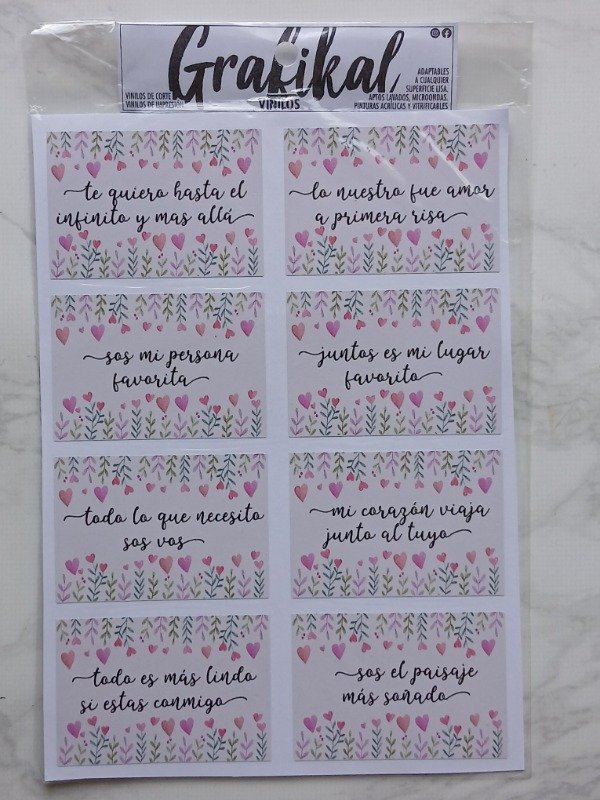 Grafikal
VINILOS
VINILOS DE CORTE
VINILOS DE IMPRESIÓN
ADAPTABLES
A CUALQUIER
SUPERFICIE LISA.
APTOS LAVADOS, MICROONDAS,
PINTURAS ACRÍLICAS Y VITRIFICABLES
te quiero hasta el
infinito y mas allá
lo nuestro fue amor
a primera risa
sos mi persona
favorita
juntos es mi lugar
favorito
todo lo que necesito
sos vos
mi corazón viaja
junto al tuyo
todo es más lindo
si estas conmigo
sos el paisaje
más soñado